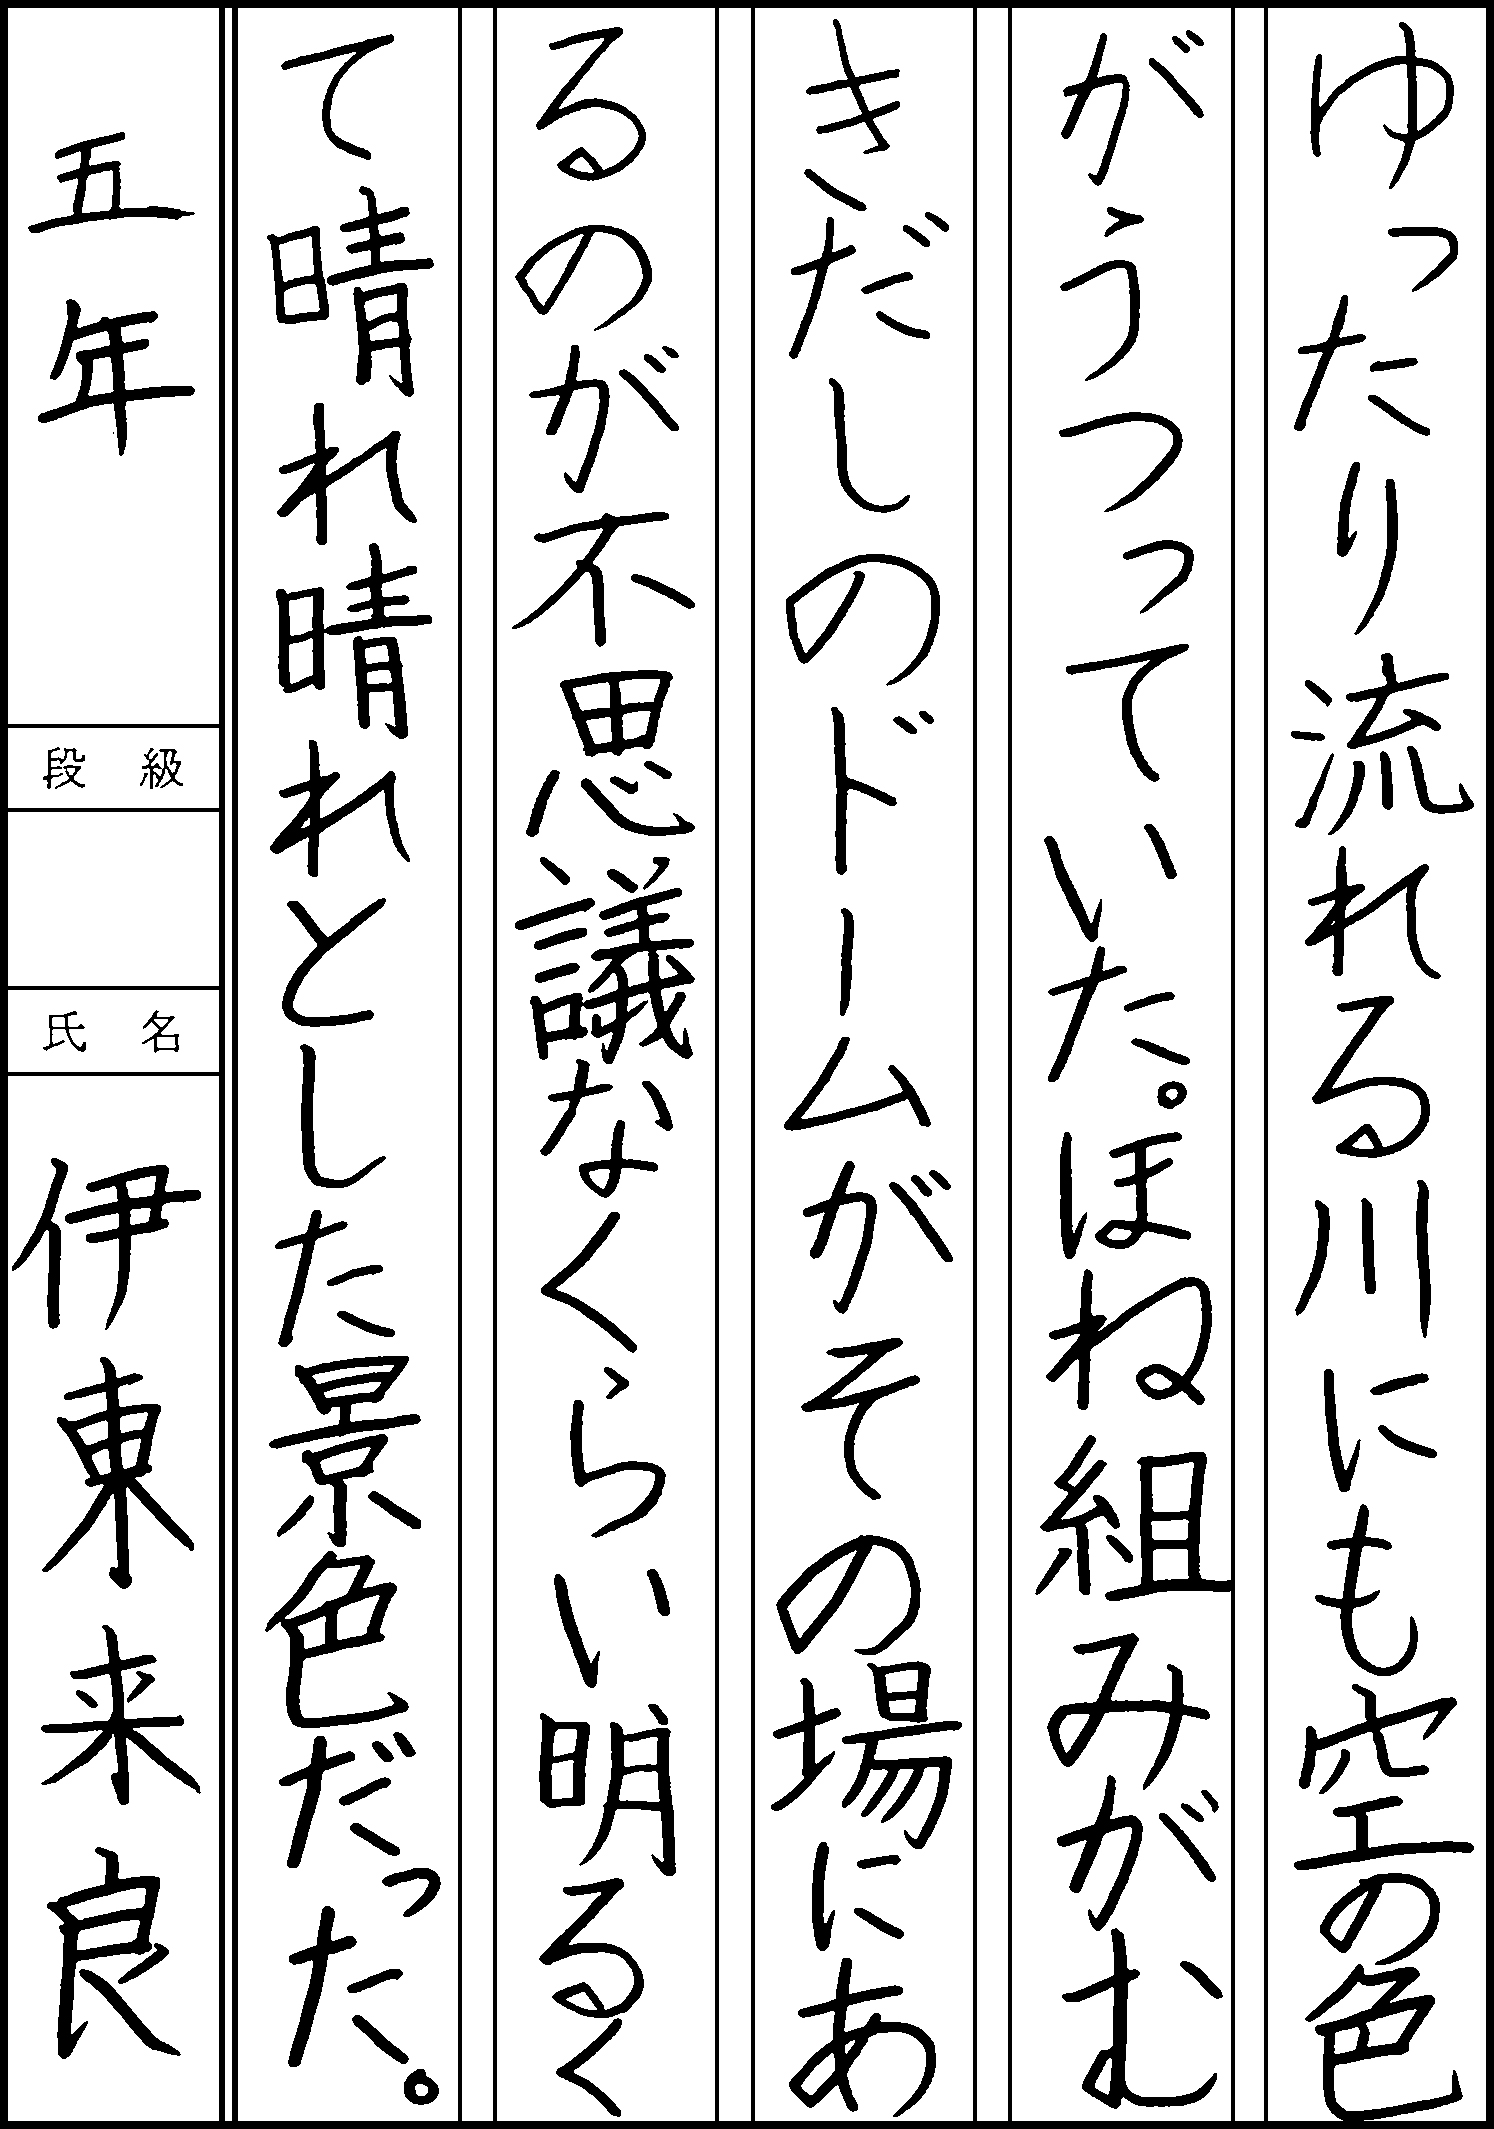 ゆったり流れる川にも空の色
がうつっていた。ほね組みがむ
きだしのドームがその場にあ
るのが不思議なくらい明るく
て晴れ晴れとした景色だった。
五年
段級
氏名
伊東来良